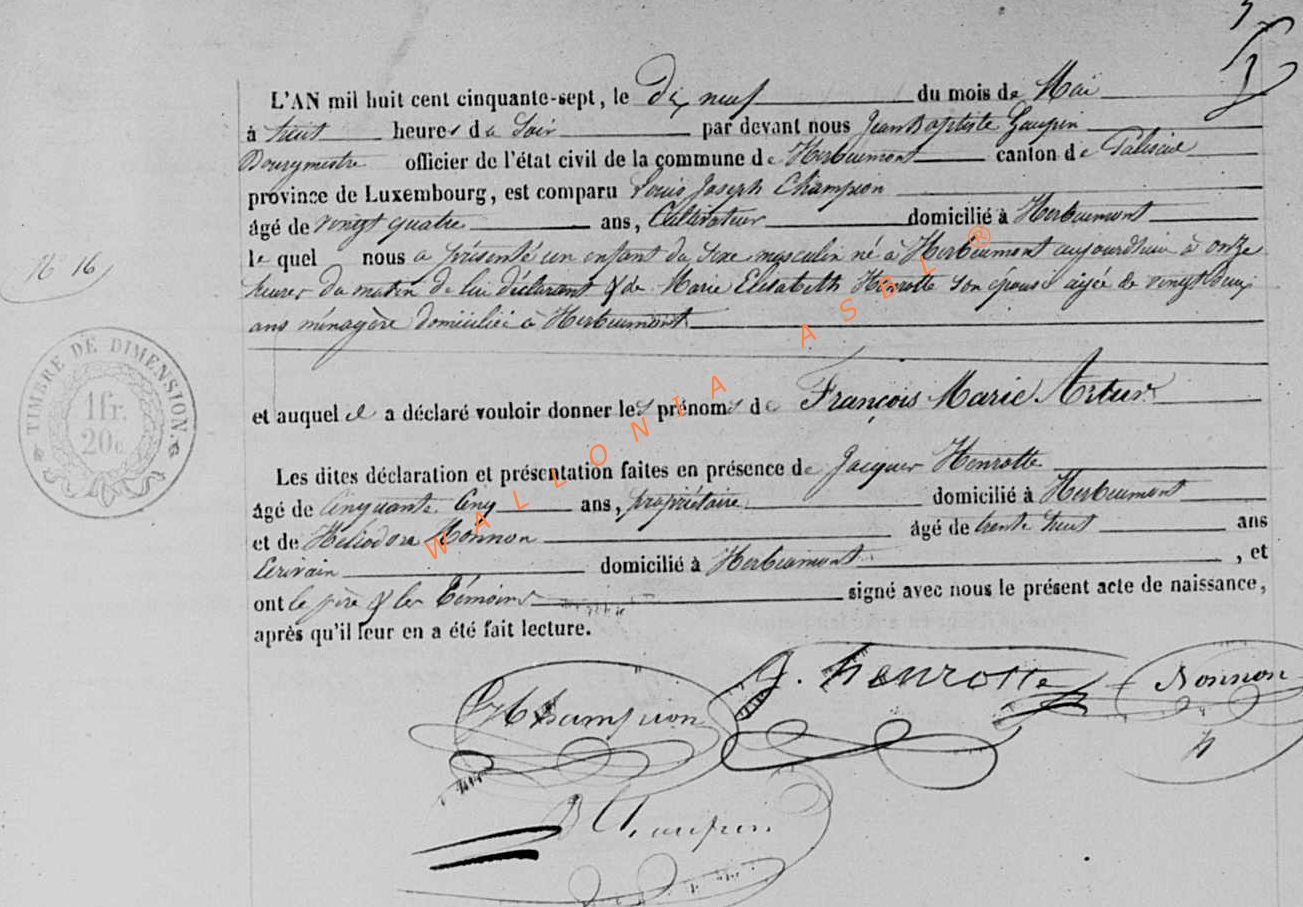 L'AN mil huit cent cinquante-sept, le Dix neuf du mois de Mai
à huit heures du Soir par devant nous Jean Baptiste Gaupin
Bourgmestre officier de l'état civil de la commune de Herbeumont canton de Paliseul
province de Luxembourg, est comparu Louis Joseph Champion
âgé de vingt quatre ans, Cultivateur domicilié à Herbeumont
le quel nous a présenté un enfant du sexe masculin né à Herbeumont aujourdhui à onze
N° 16
heures du matin de lui déclarant & de Marie Elisabeth Henrotte son épouse agée de vingt deux
ans ménagère domiciliée à Herbeumont
TIMBRE DE DIMENSION.
1 fr.
20c
et auquel il a déclaré vouloir donner les prénoms de François Marie Artur
Les dites déclaration et présentation faites en présence de Jacques Henrotte
âgé de Cinquante Cinq ans, propriétaire domicilié à Herbeumont
et de Héliodore Nonnon âgé de trente huit ans
Ecrivain domicilié à Herbeumont , et
ont le père & les témoins signé avec nous le présent acte de naissance,
après qu'il leur en a été fait lecture.
WALLONIA ASBL ®
Champion J. henrotte Nonnon